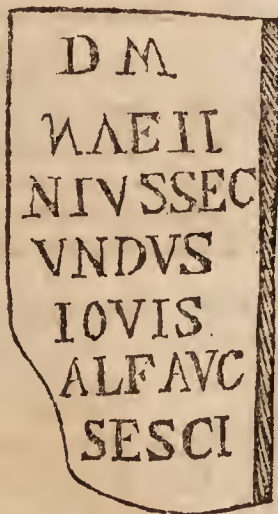 D M
NAEII
NIVSSEC
VNDVS
IOVIS
ALFAVC
SESCI